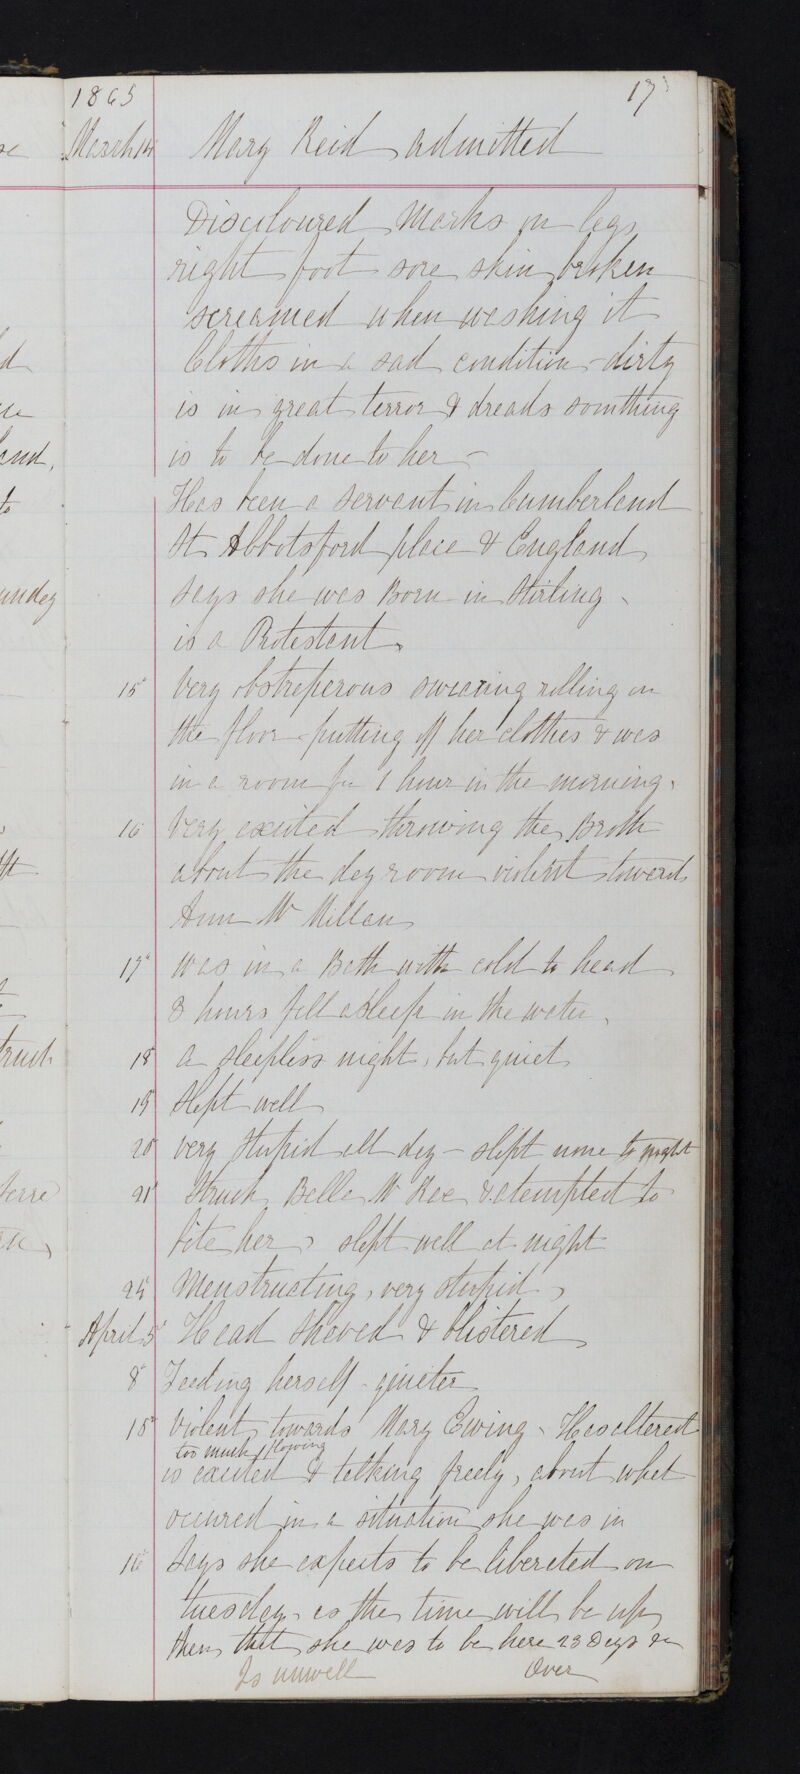 1865
17
March 14 Mary Reid admitted
Discoloured Marks on legs
right foot sore skin broken
screamed when washing it
Cloths in a sad condition - dirty
is in great terror & dreads somthing
is to be done to her -
Has been a Servant in Cumberland
St Abbotsford place & England
says she was Born in Stirling
is a Protestant.
15 Very obstreperous swearing rolling on
the floor - putting off her clothes & was
in a room for 1 hour in the morning.
16 Very excited throwing the Broth
about the dayroom violent toward
Ann McMillan
17 was in a Bath with cold to head
3 hours fell asleep in the water.
18 a sleepless night, but quiet
19 Slept well
20 very stupid all day - slept none to night
21 Struck Belle McKee & atempted to
bite her, slept well at night
25 Menstructing, very stupid,
April 5 Head Shaved & blistered
8 Feeding herself - quieter
15 Violent towards Mary Ewing - Has altered
too much flowing
is excited & talking freely, about what
occured in a situation she was in
16 Says she expects to be liberated on
tuesday, as the time will be up
then, that she was to be here 23 Days in
Is unwell Over